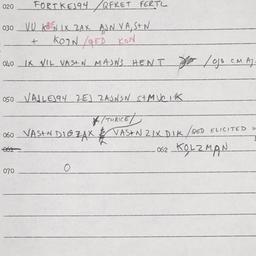 020 FORTKEJ94 /QFRET FERTL
030 VU IX ZAX AJN VAS+N
+ KOJN /QED KGN
040 IX VIL VAS+N MAJNS HENT /OJB CM AJ
050 VAJLEJ94 ZEJ ZAJNSN S+MUCIK
/TWRICE/
060 VAS+N DIG ZAX VAS+N ZIX DIK /QED ELICITED
062 KOLZMAN
070 O